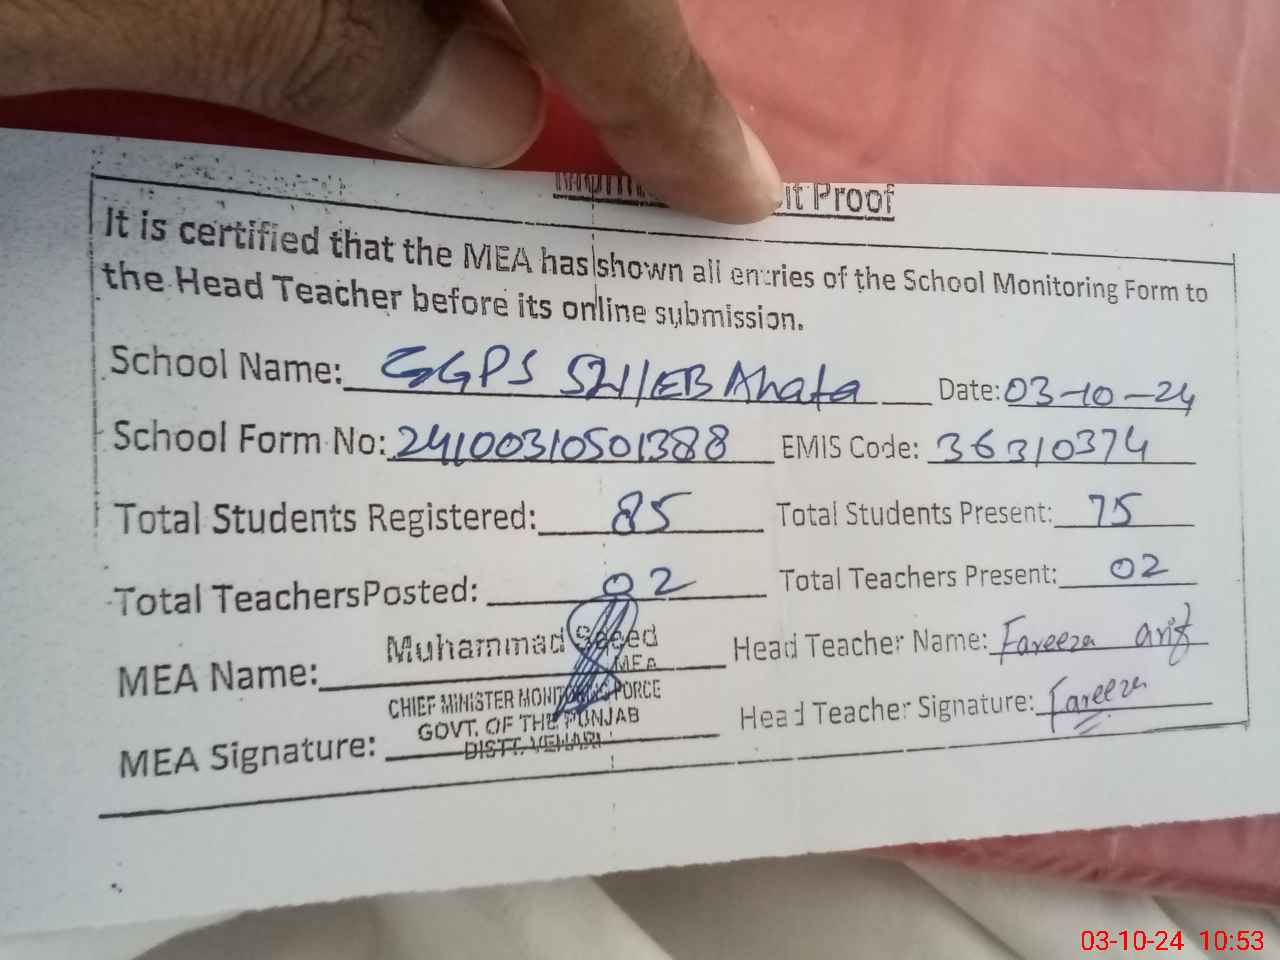 it Proof
It is certified that the MEA has shown all entries of the School Monitoring Form to
the Head Teacher before its online submission.
School Name: GGPS 541/EB Ahata Date: 03-10-24
School Form No: 24100310501388 EMIS Code: 36310374
Total Students Registered: 85 Total Students Present: 75
Total TeachersPosted: 02 Total Teachers Present: 02
MEA Name: Muhammad Saeed Head Teacher Name: Fareeza arif
MEA
CHIEF MINISTER MONITORING FORCE
GOVT. OF THE PUNJAB
MEA Signature: DISTT. VEHARI Head Teacher Signature: Fareeza
03-10-24 10:53